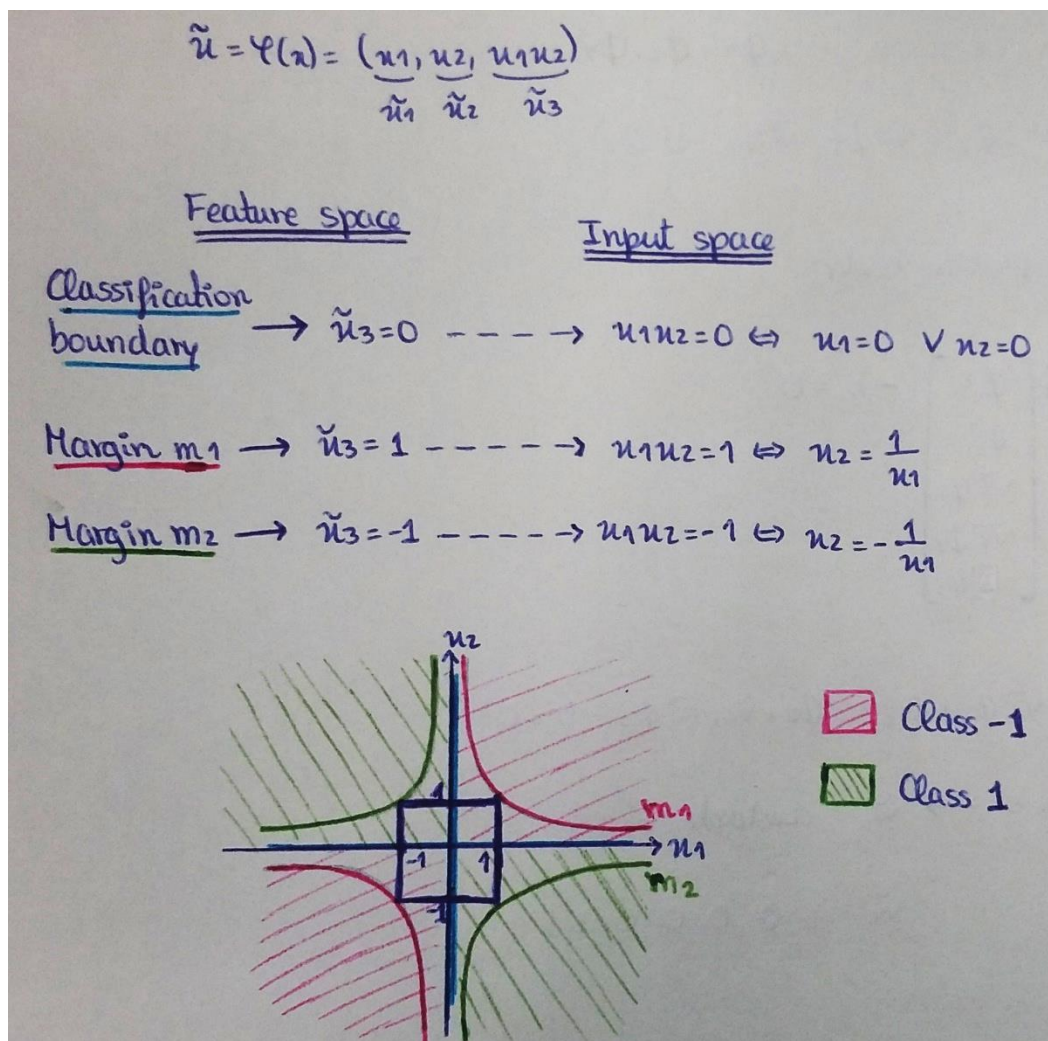 x̃ = φ(x) = (x1, x2, x1x2)
x̃1 x̃2 x̃3
Feature space Input space
Classification boundary → x̃3=0 ----→ x1x2=0 ⇔ x1=0 ∨ x2=0
Margin m1 → x̃3=1 -----→ x1x2=1 ⇔ x2=1/x1
Margin m2 → x̃3=-1 -----→ x1x2=-1 ⇔ x2=-1/x1
x2
Class -1
1
Class 1
m1
-1 1 x1
m2
-1